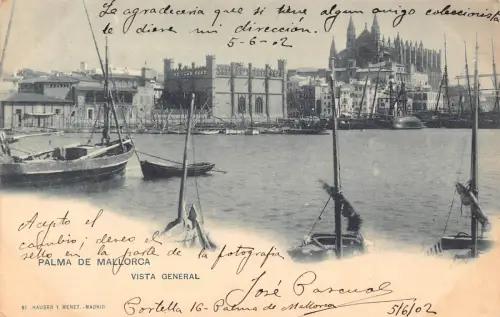 Le agradecería que si tiene algun amigo coleccionista
le diera mi dirección.
5-6-02
Acepto el
cambio; deseo el
sello en la parte de la fotografía
PALMA DE MALLORCA
VISTA GENERAL
José Pascual
Portella 16 - Palma de Mallorca
5/6/02
HAUSER Y MENET.-MADRID